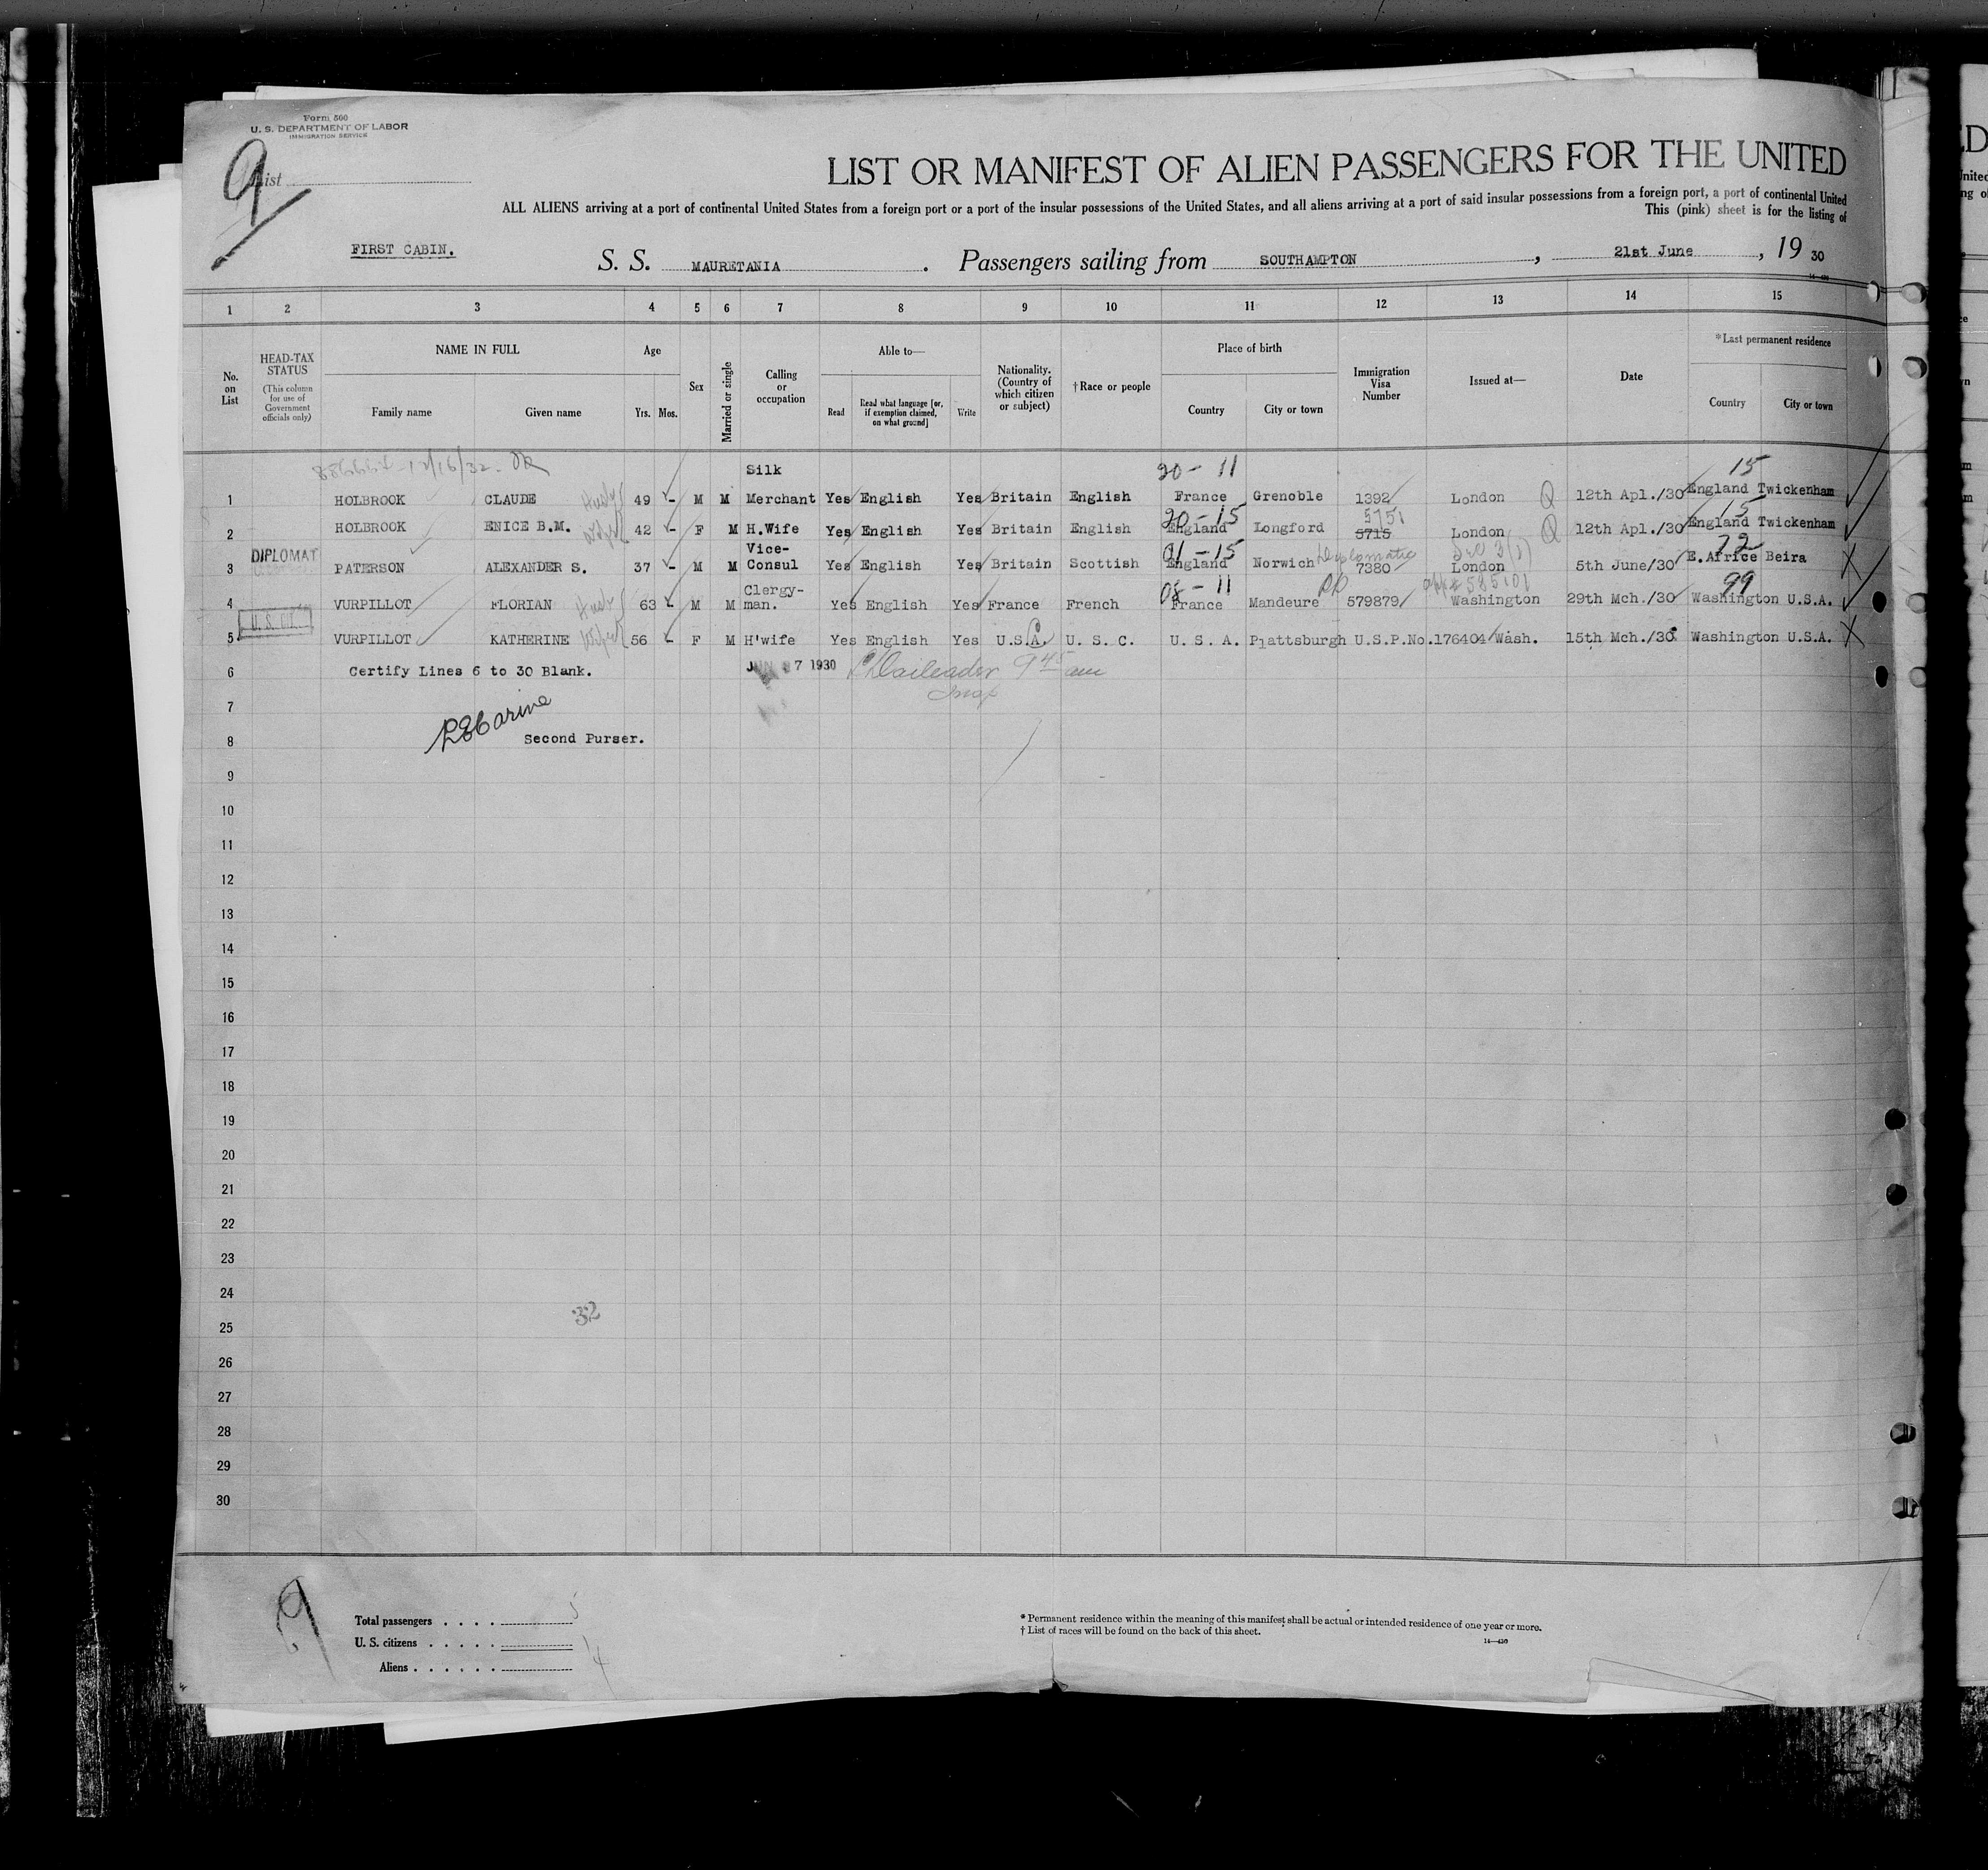 Form 500
U. S. DEPARTMENT OF LABOR
IMMIGRATION SERVICE
9
List
LIST OR MANIFEST OF ALIEN PASSENGERS FOR THE UNITED
ALL ALIENS arriving at a port of continental United States from a foreign port or a port of the insular possessions of the United States, and all aliens arriving at a port of said insular possessions from a foreign port, a port of continental United
This (pink) sheet is for the listing of
FIRST CABIN. S. S. MAURETANIA . Passengers sailing from SOUTHAMPTON , 21st June , 19 30
1 2 3 4 5 6 7 8 9 10 11 12 13 14 15
No. on List
HEAD-TAX STATUS
(This column for use of Government officials only)
NAME IN FULL
Family name Given name
Age
Yrs. Mos.
Sex
Married or single
Calling or occupation
Able to—
Read
Read what language [or, if exemption claimed, on what ground]
Write
Nationality. (Country of which citizen or subject)
†Race or people
Place of birth
Country City or town
Immigration Visa Number
Issued at—
Date
*Last permanent residence
Country City or town
12/16/32 Silk 20 - 11 15
1 HOLBROOK CLAUDE Husb 49 - M M Merchant Yes English Yes Britain English France Grenoble 1392 London Q 12th Apl./30 England Twickenham
20 - 15 5751 15
2 HOLBROOK ENICE B.M. Wife 42 - F M H.Wife Yes English Yes Britain English England Longford 5715 London Q 12th Apl./30 England Twickenham
DIPLOMAT Vice- 01 - 15 Diplomatic Sec 3(1) 72
3 PATERSON ALEXANDER S. 37 - M M Consul Yes English Yes Britain Scottish England Norwich 7380 London 5th June/30 E.Africe Beira
Clergy- 08 - 11 RP 585101 99
4 VURPILLOT FLORIAN Husb 63 - M M man. Yes English Yes France French France Mandeure 579879 Washington 29th Mch./30 Washington U.S.A.
U.S. CIT.
5 VURPILLOT KATHERINE Wife 56 - F M H'wife Yes English Yes U.S.A. U. S. C. U. S. A. Plattsburgh U.S.P.No.176404 Wash. 15th Mch./30 Washington U.S.A.
6 Certify Lines 6 to 30 Blank. JUN 27 1930 9 45 am
Insp
7
8 Second Purser.
9
10
11
12
13
14
15
16
17
18
19
20
21
22
23
24
32
25
26
27
28
29
30
9
Total passengers . . . . 5
U. S. citizens . . . . . 1
Aliens . . . . . . 4
* Permanent residence within the meaning of this manifest shall be actual or intended residence of one year or more.
† List of races will be found on the back of this sheet.
14—430